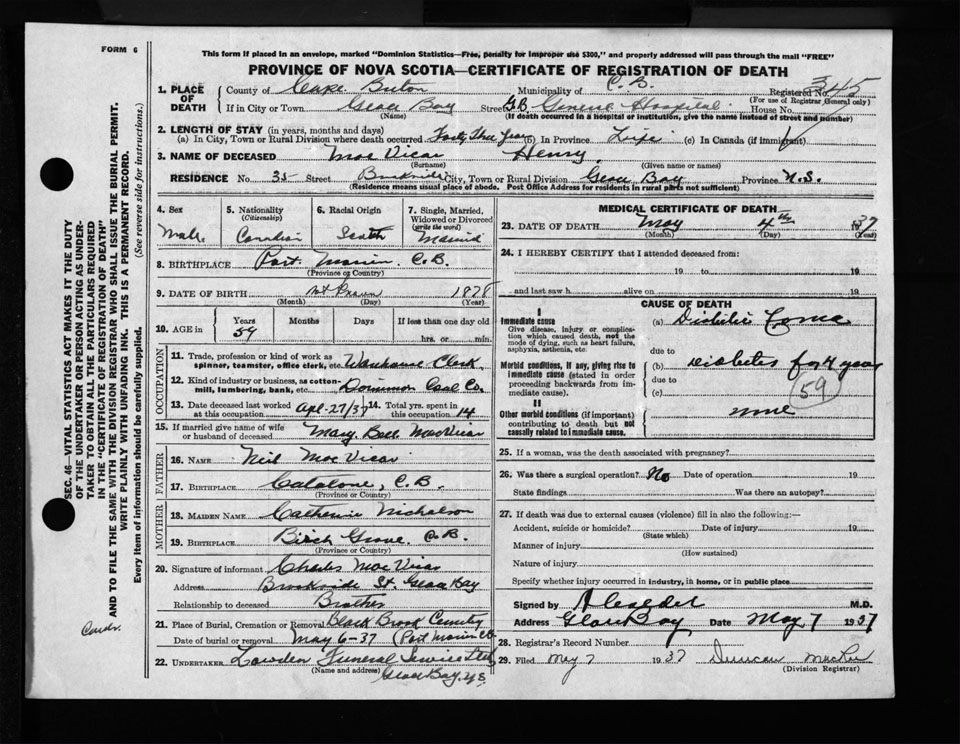 FORM 6
This form if placed in an envelope, marked "Dominion Statistics—Free, penalty for improper use $300," and properly addressed will pass through the mail "FREE"
PROVINCE OF NOVA SCOTIA—CERTIFICATE OF REGISTRATION OF DEATH
1. PLACE OF DEATH County of Cape Breton Municipality of C.B. Registered No. 345
(For use of Registrar General only)
If in City or Town Glace Bay Street G.B. General Hospital. House No.
(Name) (If death occurred in a hospital or institution, give the name instead of street and number)
2. LENGTH OF STAY (in years, months and days)
(a) In City, Town or Rural Division where death occurred Forty Three Years (b) In Province Life (c) In Canada (if immigrant)
3. NAME OF DECEASED Mac Vicar Henry
(Surname) (Given name or names)
RESIDENCE No. 35 Street Brookside City, Town or Rural Division Glace Bay Province N.S.
(Residence means usual place of abode. Post Office Address for residents in rural parts not sufficient)
4. Sex Male
5. Nationality (Citizenship) Canadian
6. Racial Origin Scotch
7. Single, Married, Widowed or Divorced (write the word) Married
8. BIRTHPLACE Port Morien C.B.
(Province or Country)
9. DATE OF BIRTH Not Known 1878
(Month) (Day) (Year)
10. AGE in Years 59 Months Days If less than one day old
hrs. or min.
OCCUPATION
11. Trade, profession or kind of work as spinner, teamster, office clerk, etc. Warehouse Clerk
12. Kind of industry or business, as cotton-mill, lumbering, bank, etc. Dominion Coal Co.
13. Date deceased last worked at this occupation Apl-27/37 14. Total yrs. spent in this occupation 14
15. If married give name of wife or husband of deceased Mary Bell MacVicar
FATHER
16. NAME Neil MacVicar
17. BIRTHPLACE Catalone, C.B.
(Province or Country)
MOTHER
18. MAIDEN NAME Catherine Nicholson
19. BIRTHPLACE Birch Grove, C.B.
(Province or Country)
20. Signature of informant Charles MacVicar
Address Brookside St. Glace Bay
Relationship to deceased Brother
21. Place of Burial, Cremation or Removal Black Brook Cemetery
Date of burial or removal May 6-37 (Port Morien CB
22. UNDERTAKER Lowden Funeral Service Ltd
(Name and address) Glace Bay. N.S
MEDICAL CERTIFICATE OF DEATH
23. DATE OF DEATH May 4th 1937
(Month) (Day) (Year)
24. I HEREBY CERTIFY that I attended deceased from:
19 to 19
and last saw h alive on 19
CAUSE OF DEATH
I
Immediate cause
Give disease, injury or complication which caused death, not the mode of dying, such as heart failure, asphyxia, asthenia, etc.
(a) Diabetic Coma
due to
Morbid conditions, if any, giving rise to immediate cause (stated in order proceeding backwards from immediate cause).
(b) Diabetes for 4 year
due to
(c) 59
II
Other morbid conditions (if important) contributing to death but not causally related to immediate cause.
none
25. If a woman, was the death associated with pregnancy?
26. Was there a surgical operation? No Date of operation 19
State findings Was there an autopsy?
27. If death was due to external causes (violence) fill in also the following:
Accident, suicide or homicide? Date of injury 19
(State which)
Manner of injury
(How sustained)
Nature of injury
Specify whether injury occurred in industry, in home, or in public place
Signed by M.D.
Address Glace Bay Date May 7 1937
28. Registrar's Record Number
29. Filed May 7 1937 Duncan MacRae
(Division Registrar)
SEC. 46—VITAL STATISTICS ACT MAKES IT THE DUTY
OF THE UNDERTAKER OR PERSON ACTING AS UNDER-
TAKER TO OBTAIN ALL THE PARTICULARS REQUIRED
IN THE "CERTIFICATE OF REGISTRATION OF DEATH"
AND TO FILE THE SAME WITH THE DIVISION REGISTRAR WHO SHALL ISSUE THE BURIAL PERMIT.
WRITE PLAINLY WITH UNFADING INK. THIS IS A PERMANENT RECORD.
Every item of information should be carefully supplied. (See reverse side for instructions.)